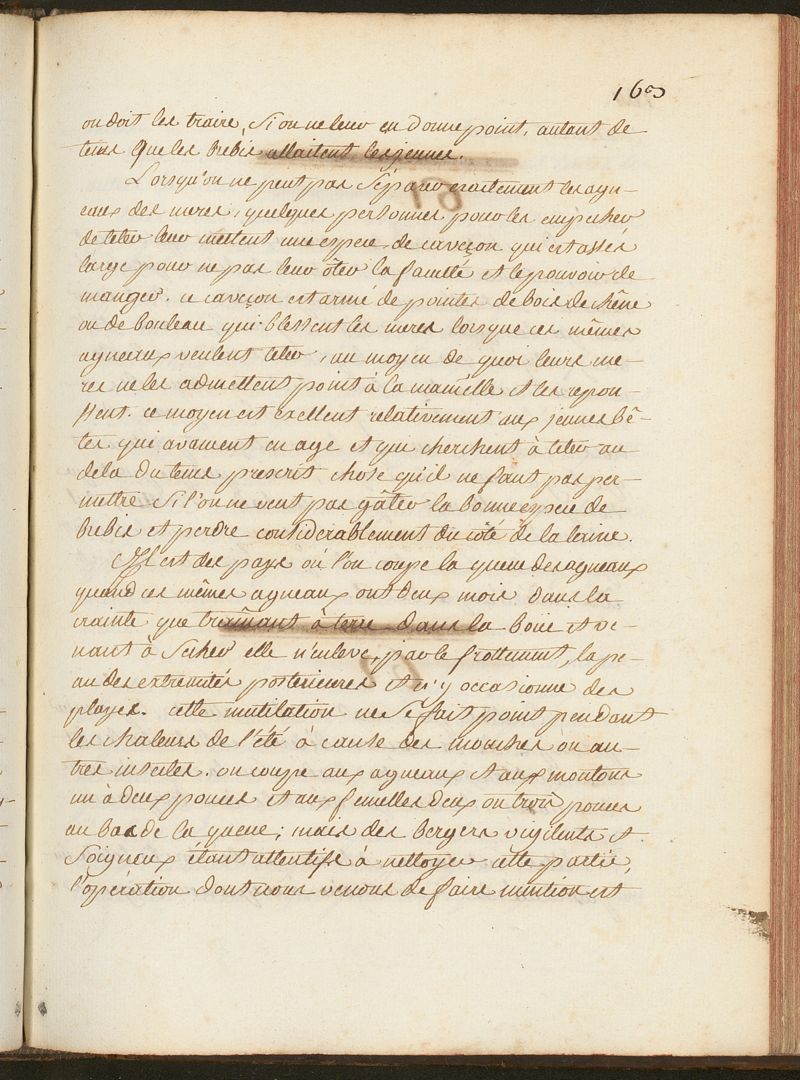 163
on doit les traire, si on ne leur en donne point, autant de
tems que les brebis allaitent les jeunes.
Lorsqu'on ne peut pas séparer exactement les agn-
eaux des meres, quelques personnes pour les empecher
de teter leur mettent une espece de caveçon qui est assés
large pour ne pas leur ôter la faculté et le pouvoir de
manger. ce caveçon est armé de pointes de bois de chêne
ou de bouleau qui blessent les meres lorsque ces mêmes
agneaux veulent teter, au moyen de quoi leurs me-
res ne les admettent point à la mamelle et les repou-
ssent. ce moyen est exellent relativement aux jeunes bê-
tes qui avancent en age et qui cherchent à teter au
dela du tems prescrit chose qu'il ne faut pas per-
mettre si l'on ne veut pas gâter la bonne espece de
brebis et perdre considerablement du côté de la laine.
Il est des pays où l'on coupe la queue des agneaux
quand ces mêmes agneaux ont deux mois dans la
crainte que traînant à terre dans la boue et ve-
nant à secher elle n'enleve, par le frottement, la pe-
au des extremités posterieures et n'y occasionne des
playes. cette mutilation ne se fait point pendant
les chaleurs de l'été à cause des mouches ou au-
tres insectes. on coupe aux agneaux et aux moutons
un à deux pouces et aux femelles deux ou trois pouces
au bas de la queue; mais des bergers vigilents et
soigneux étant attentifs à nettoyer cette partie,
l'opération dont nous venons de faire mention est